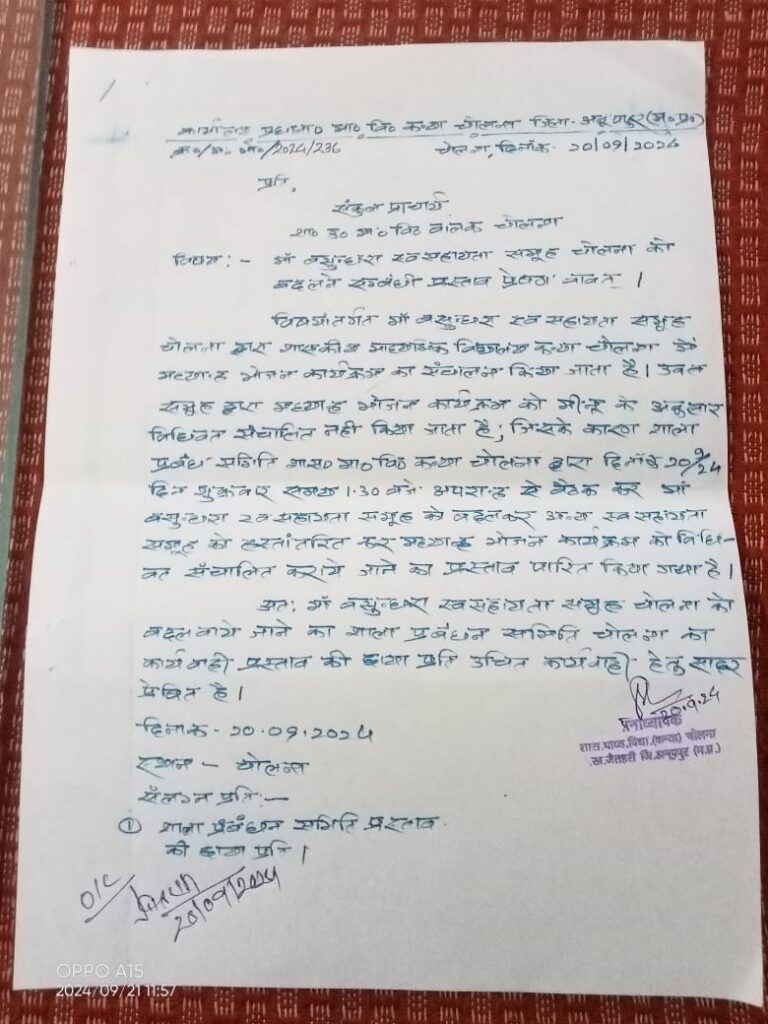 कार्यालय प्रधाना० मा० वि० कन्या चोलना जिला- अनूपपुर (म०प्र०)
/2024/236 चोलना, दिनांक- 20/09/2024
प्रति,
संकुल प्राचार्य
शा० उ० मा० वि० बालक चोलना
विषय :- माँ वसुन्धरा स्व सहायता समूह चोलना को
बदलने सम्बंधी प्रस्ताव प्रेषण बावत् ।
विषयांतर्गत माँ वसुन्धरा स्व सहायता समूह
चोलना द्वारा शासकीय माध्यमिक विद्यालय कन्या चोलना में
मध्यान्ह भोजन कार्यक्रम का संचालन किया जाता है। उक्त
समूह द्वारा मध्यान्ह भोजन कार्यक्रम को मीनू के अनुसार
विधिवत संचालित नही किया जाता है; जिसके कारण शाला
प्रबंध समिति शास० मा० वि० कन्या चोलना द्वारा दिनाँक 20/9/24
दिन शुक्रवार समय 1.30 बजे अपरान्ह से बैठक कर माँ
वसुन्धरा स्व सहायता समूह को बदलकर अन्य स्व सहायता
समूह को हस्तांतरित कर मध्यान्ह भोजन कार्यक्रम को विधि-
वत संचालित कराये जाने का प्रस्ताव पारित किया गया है।
अतः माँ वसुन्धरा स्व सहायता समूह चोलना को
बदलवाये जाने का शाला प्रबंधन समिति चोलना का
कार्यवाही प्रस्ताव की छाया प्रति उचित कार्यवाही हेतु सादर
प्रेषित है।
20.9.24
प्रधानाध्यापक
शास.माध्य.विद्या.(कन्या) चोलना
ख.जैतहरी जि.अनूपपुर (म.प्र.)
दिनांक- 20.09.2024
स्थान - चोलना
संलग्न प्रति :-
① शाला प्रबंधन समिति प्रस्ताव
की छाया प्रति ।
O/C
20/09/2024
OPPO A15
2024/09/21 11:57